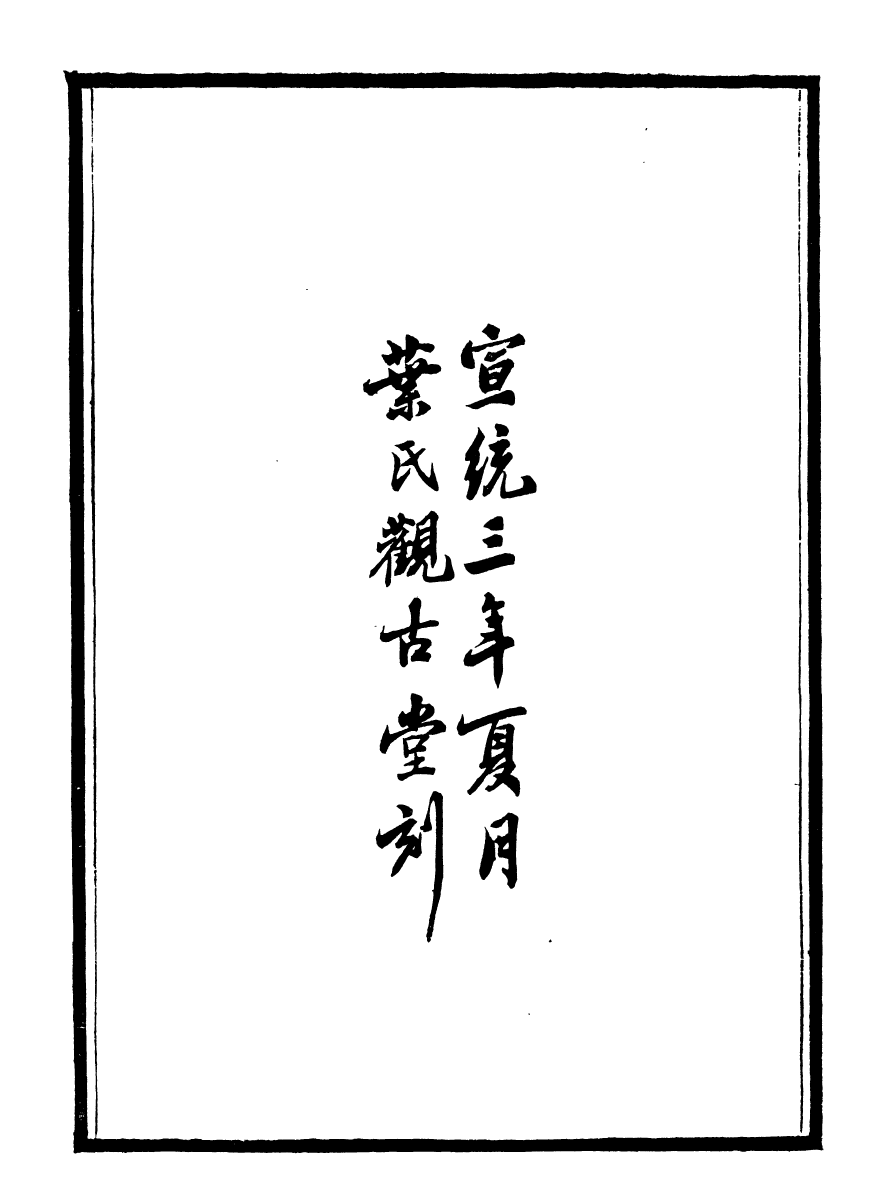 宣統三年夏月
葉氏觀古堂刻